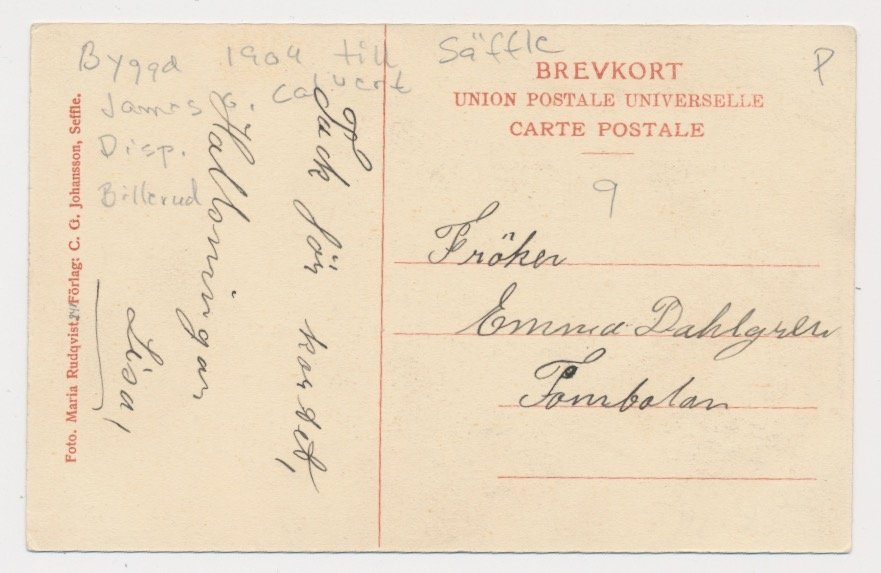 Byggd 1904 till Säffle
James G. Calvert
Disp.
Billerud
P
BREVKORT
UNION POSTALE UNIVERSELLE
CARTE POSTALE
9
Tack för kortet,
Hälsningar
Lisa,
Fröken
Emma Dahlgren
Tombolan
Foto. Maria Rudqvist. Förlag: C. G. Johansson, Seffle.